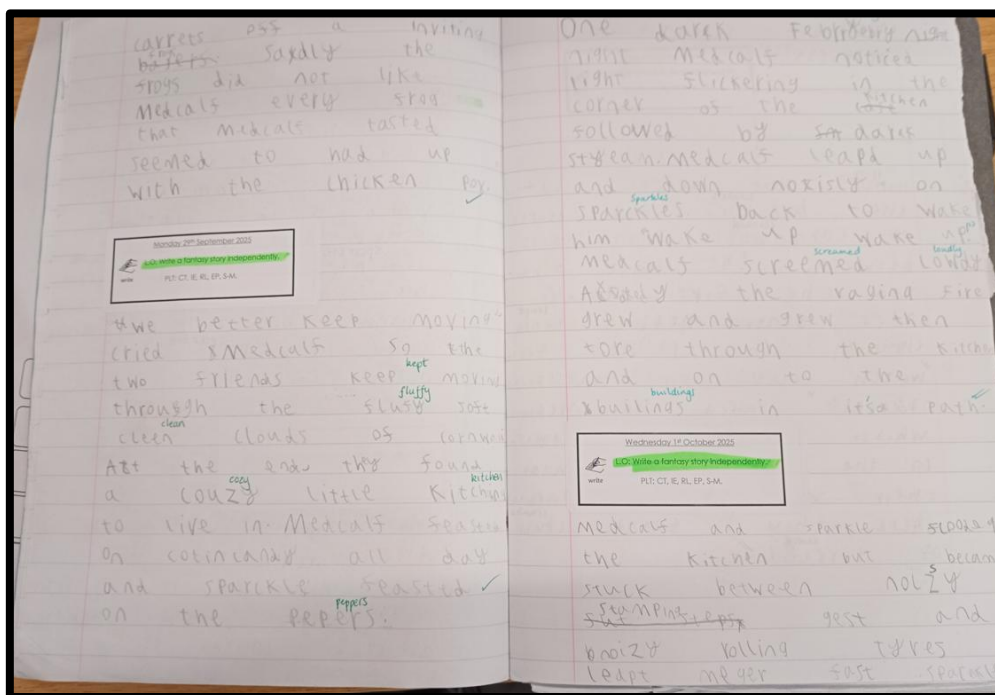 carrets off a inviting
bifers saxdly the
frogs did not like
Medcalf every frog
that Medcalf tasted
seemed to had up
with the chicken pox.
Monday 29th September 2025
L.O: Write a fantasy story independently.
write
PLT: CT, IE, RL, EP, S-M.
we better keep moving"
cried Medcalf so the
kept
two friends keep moving
fluffy
through the flufy soft
clean
cleen clouds of cornwall
Att the end they found
cozy kitchen
a couzy little Kitchen
to live in. Medcalf feasted
on cotincandy all day
and sparckle feasted
peppers
on the pepers.
One darck February
night Medcalf noticed
right flickering in the
corner of the kitchen
followed by darck
Medcalf leapd up
and down noxisly on
Sparkles
sparckles back to wake
him wake up wake up!"
screamed loudly
Medcalf screemed lowdy
the raging fire
grew and grew then
tore through the kitchen
and on to the
buildings
builings in it's path.
Wednesday 1st October 2025
L.O: Write a fantasy story independently.
write
PLT: CT, IE, RL, EP, S-M.
Medcalf and sparkle
the kitchen but became
s
stuck between noizy
stamping gest and
noizy rolling tyres
leapt fast